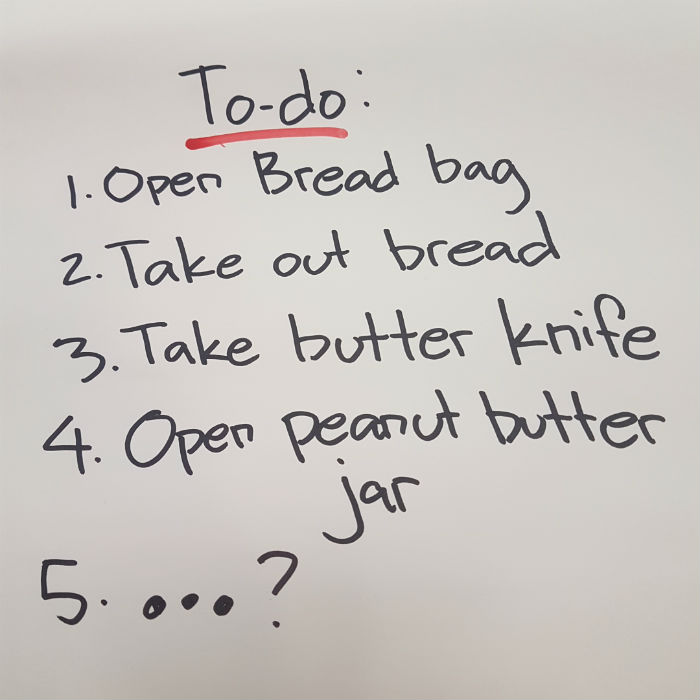 To-do:
1. Open Bread bag
2. Take out bread
3. Take butter knife
4. Open peanut butter
jar
5. ...?